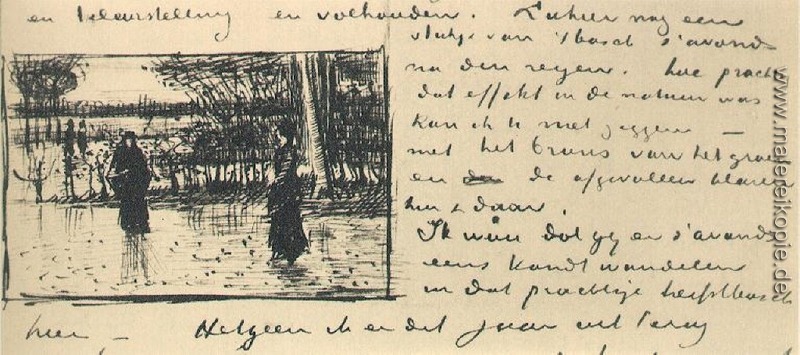 en teleurstelling en volhouden. Ziehier nog een
plekje van 't bosch s'avonds
na den regen. hoe prachtig
dat effekt in de natuur was
kan ik U niet zeggen —
met het brons van het groen
en de afgevallen blaren
hier & daar.
Ik wou dat gy er s'avonds
eens kondt wandelen
in dat prachtige herfstbosch
hier — Hetgeen ik er dit jaar uit
www.malereikopie.de